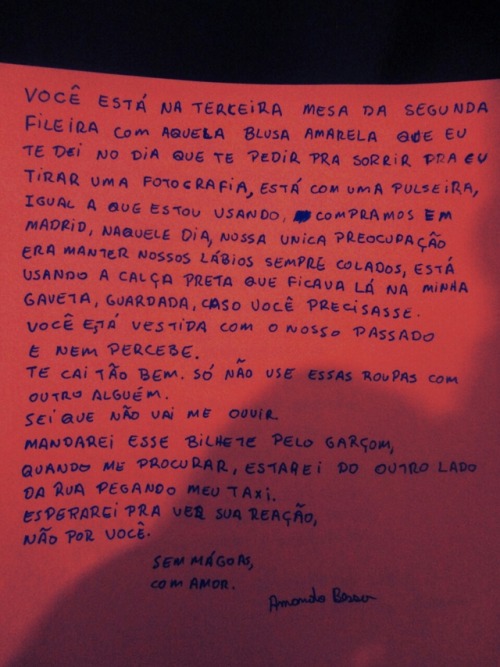 VOCÊ ESTÁ NA TERCEIRA MESA DA SEGUNDA
FILEIRA COM AQUELA BLUSA AMARELA QUE EU
TE DEI NO DIA QUE TE PEDIR PRA SORRIR PRA EU
TIRAR UMA FOTOGRAFIA, ESTÁ COM UMA PULSEIRA,
IGUAL A QUE ESTOU USANDO, COMPRAMOS EM
MADRID, NAQUELE DIA, NOSSA UNICA PREOCUPAÇÃO
ERA MANTER NOSSOS LÁBIOS SEMPRE COLADOS, ESTÁ
USANDO A CALÇA PRETA QUE FICAVA LÁ NA MINHA
GAVETA, GUARDADA, CASO VOCÊ PRECISASSE.
VOCÊ ESTÁ VESTIDA COM O NOSSO PASSADO
E NEM PERCEBE.
TE CAI TÃO BEM. SÓ NÃO USE ESSAS ROUPAS COM
OUTRO ALGUÉM.
SEI QUE NÃO VAI ME OUVIR
MANDAREI ESSE BILHETE PELO GARÇOM,
QUANDO ME PROCURAR, ESTAREI DO OUTRO LADO
DA RUA PEGANDO MEU TAXI.
ESPERAREI PRA VER SUA REAÇÃO,
NÃO POR VOCÊ.
SEM MÁGOAS,
COM AMOR.